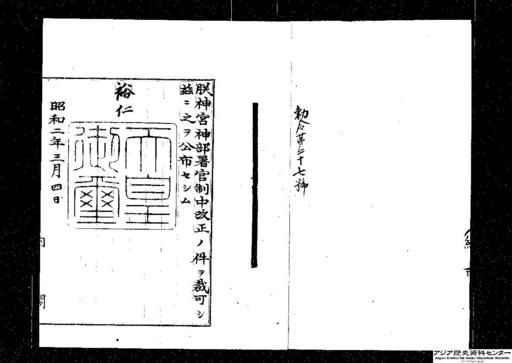 勅令第三十七號
朕神宮神部署官制中改正ノ件ヲ裁可シ
茲ニ之ヲ公布セシム
裕仁
天皇御璽
昭和二年三月四日
内閣
アジア歴史資料センター
Japan Center for Asian Historical Records